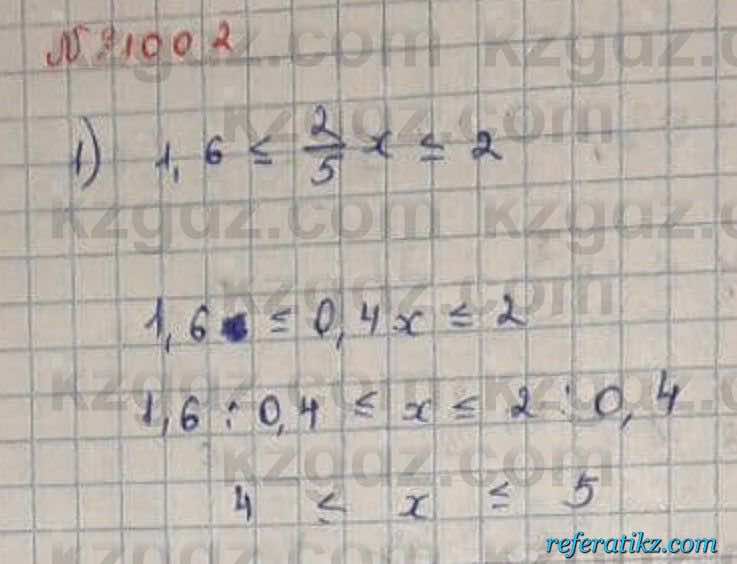 № 1002
1) 1,6 ≤ 2/5 x ≤ 2
1,6 ≤ 0,4x ≤ 2
1,6 : 0,4 ≤ x ≤ 2 : 0,4
4 ≤ x ≤ 5
kzgdz.com
referatikz.com